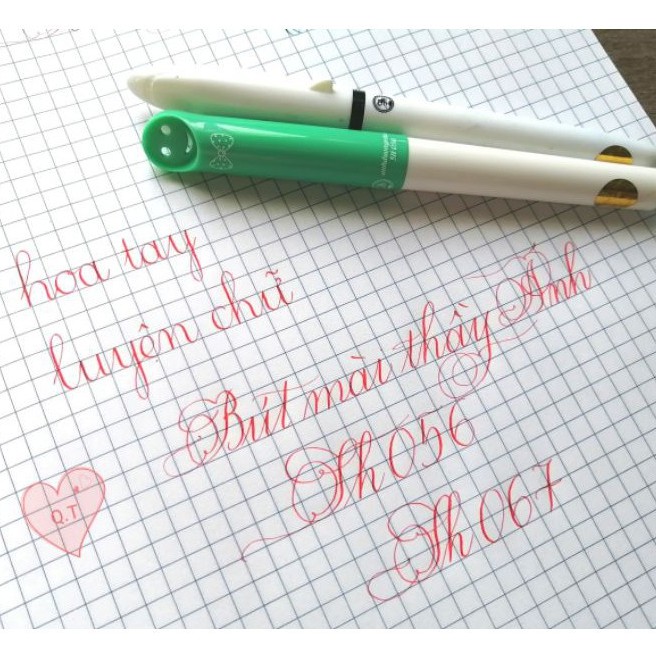 hoa tay
luyện chữ
Bút mài thầy Ánh
Th 056
Th 067
Q.T